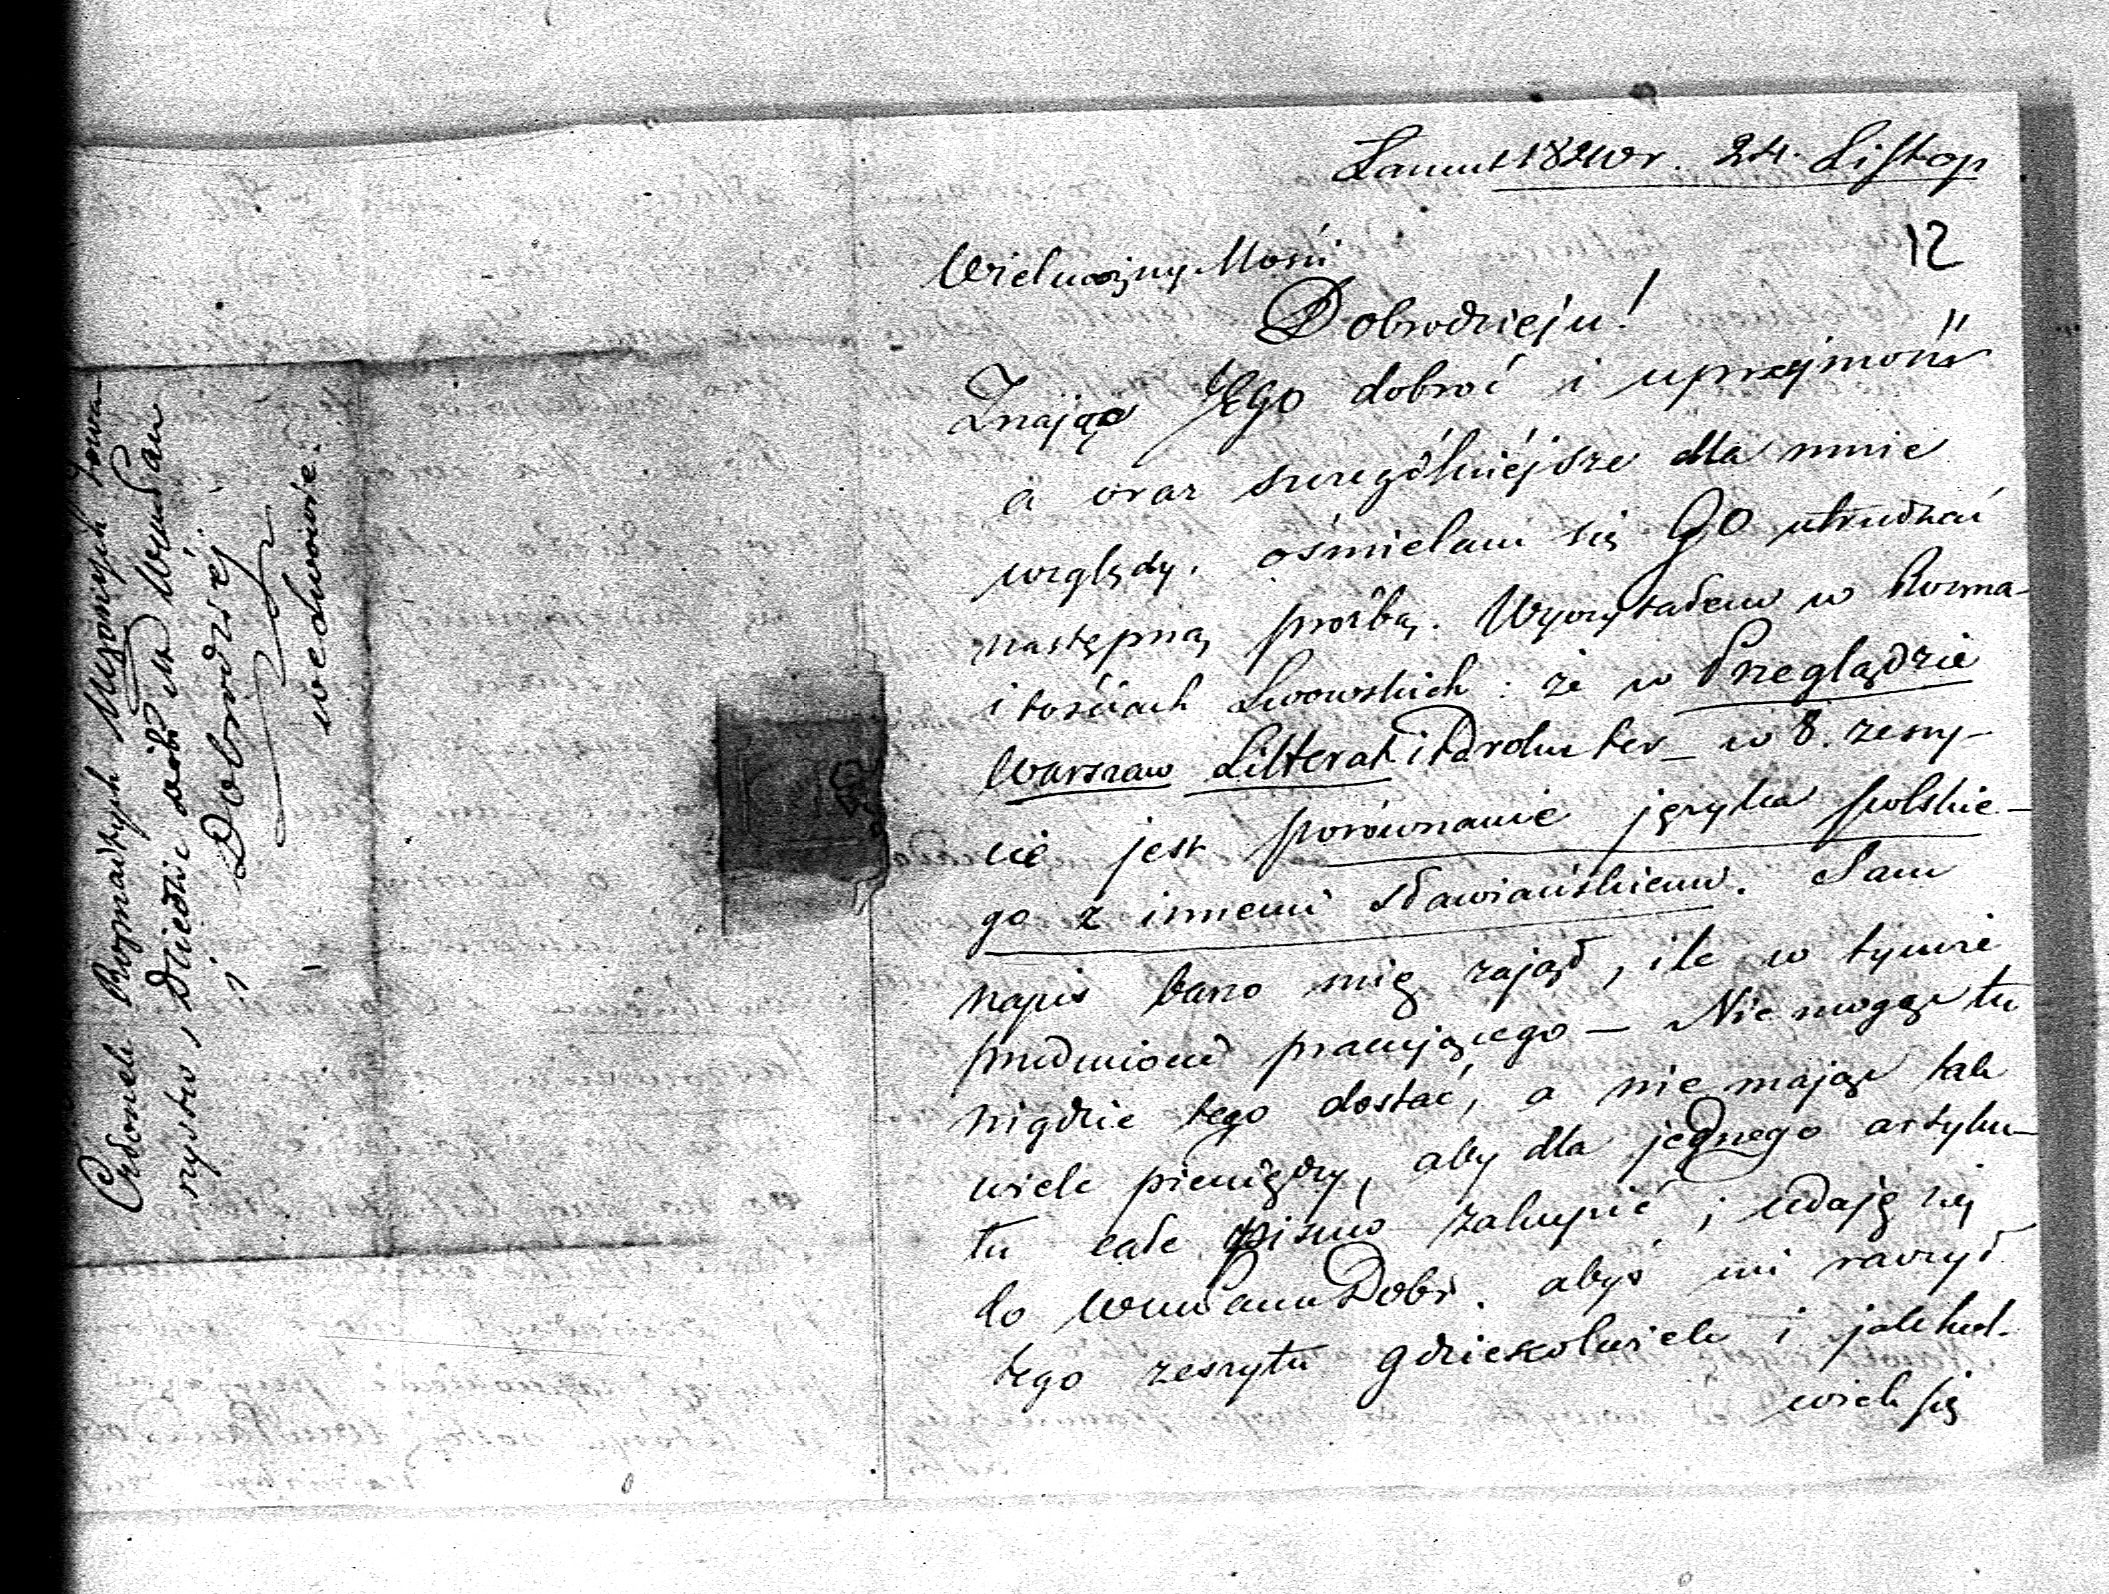 Łancut 1840r. 24. Listop
12
Wielmożny Mości
Dobrodzieju!
Znając JEgo dobroć i uprzejmość
a oraz szczególniejsze dla mnie
względy, ośmielam się GO utrudzać
następną prośbą. Wyczytałem w Rozma-
itościach Lwowskich: że w Przeglądzie
Warszaw Litterat i t d w 8. zeszy-
cie jest porównanie języka polskie-
go z innemi sławiańskiemi. Sam
napis bano mię zajął, ile w tymże
przedmiocie pracującego — Nie mogąc tu
nigdzie tego dostać, a nie mając tak
wiele pieniędzy, aby dla jednego artyku-
łu całe pismo zakupić; udaję się
do WmPana Dobr. abyś mi raczył
tego zeszytu gdziekolwiek i jakkol-
wiek się
Członek Rozmaitych Uczonych Towa-
rzystw, Dziedzic dóbr
i Dobrodziej
we Lwowie.